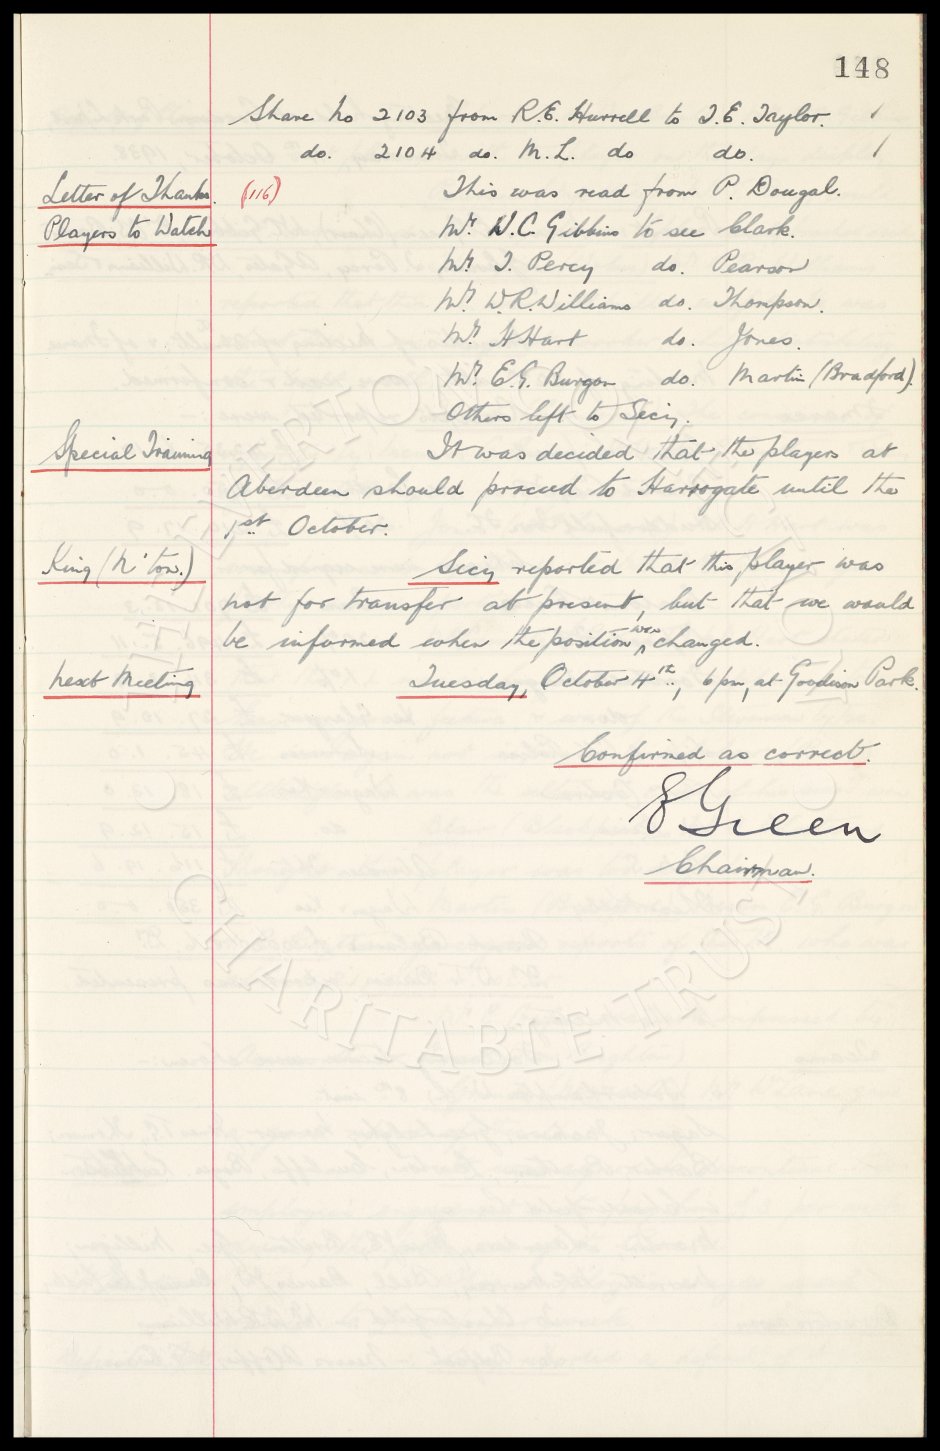 148
Share No 2103 from R.E. Hurrell to T.E. Taylor. 1
do. 2104 do. M.L. do do. 1
Letter of Thanks. (116) This was read from P. Dougal.
Players to Watch Mr. W.C. Gibbins to see Clark.
Mr. T. Percy do. Pearson
Mr. W.R. Williams do. Thompson.
Mr. H Hart do. Jones.
Mr. E.G. Burgon do. Martin (Bradford).
Others left to Secy.
Special Training It was decided that the players at
Aberdeen should proceed to Harrogate until the
1st October.
King (N'ton.) Secy reported that this player was
not for transfer at present, but that we would
be informed when the position was changed.
Next Meeting Tuesday, October 4th, 6 pm, at Goodison Park.
Confirmed as correct.
Green
Chairman.
CHARITABLE TRUST